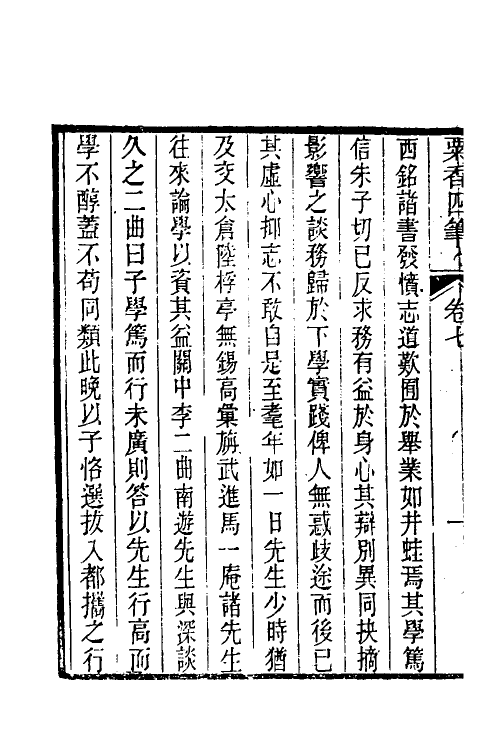 粟香四筆 卷七
西銘諸書發憤志道歎囿於舉業如井蛙焉其學篤
信朱子切己反求務有益於身心其辯別異同抉摘
影響之談務歸於下學實踐俾人無惑歧途而後已
其虛心抑志不敢自是至耄年如一日先生少時猶
及交太倉陸桴亭無錫高彙旃武進馬一庵諸先生
往來論學以資其益關中李二曲南遊先生與深談
久之二曲曰子學篤而行未廣則答以先生行高而
學不醇蓋不苟同類此晚以子恪選拔入都攜之行